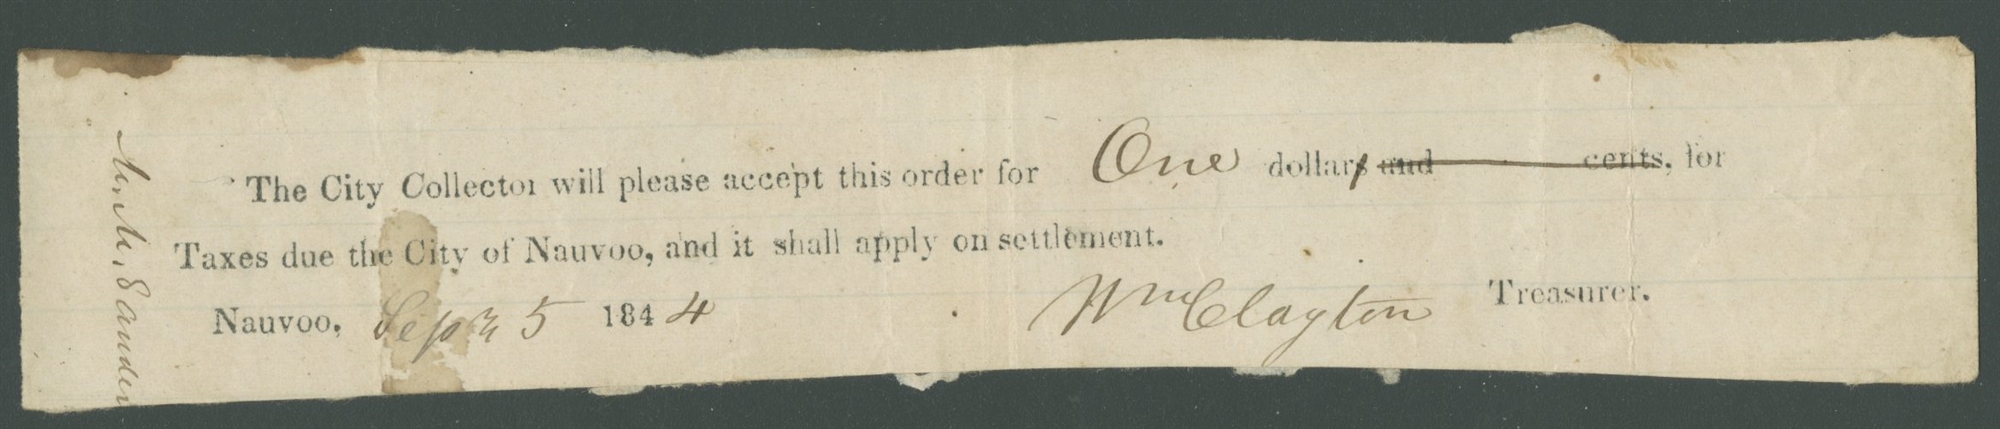 The City Collector will please accept this order for One dollars and cents, for
Taxes due the City of Nauvoo, and it shall apply on settlement.
Nauvoo, Sept 5 1844 Wm Clayton Treasurer.
M. M. Sanders